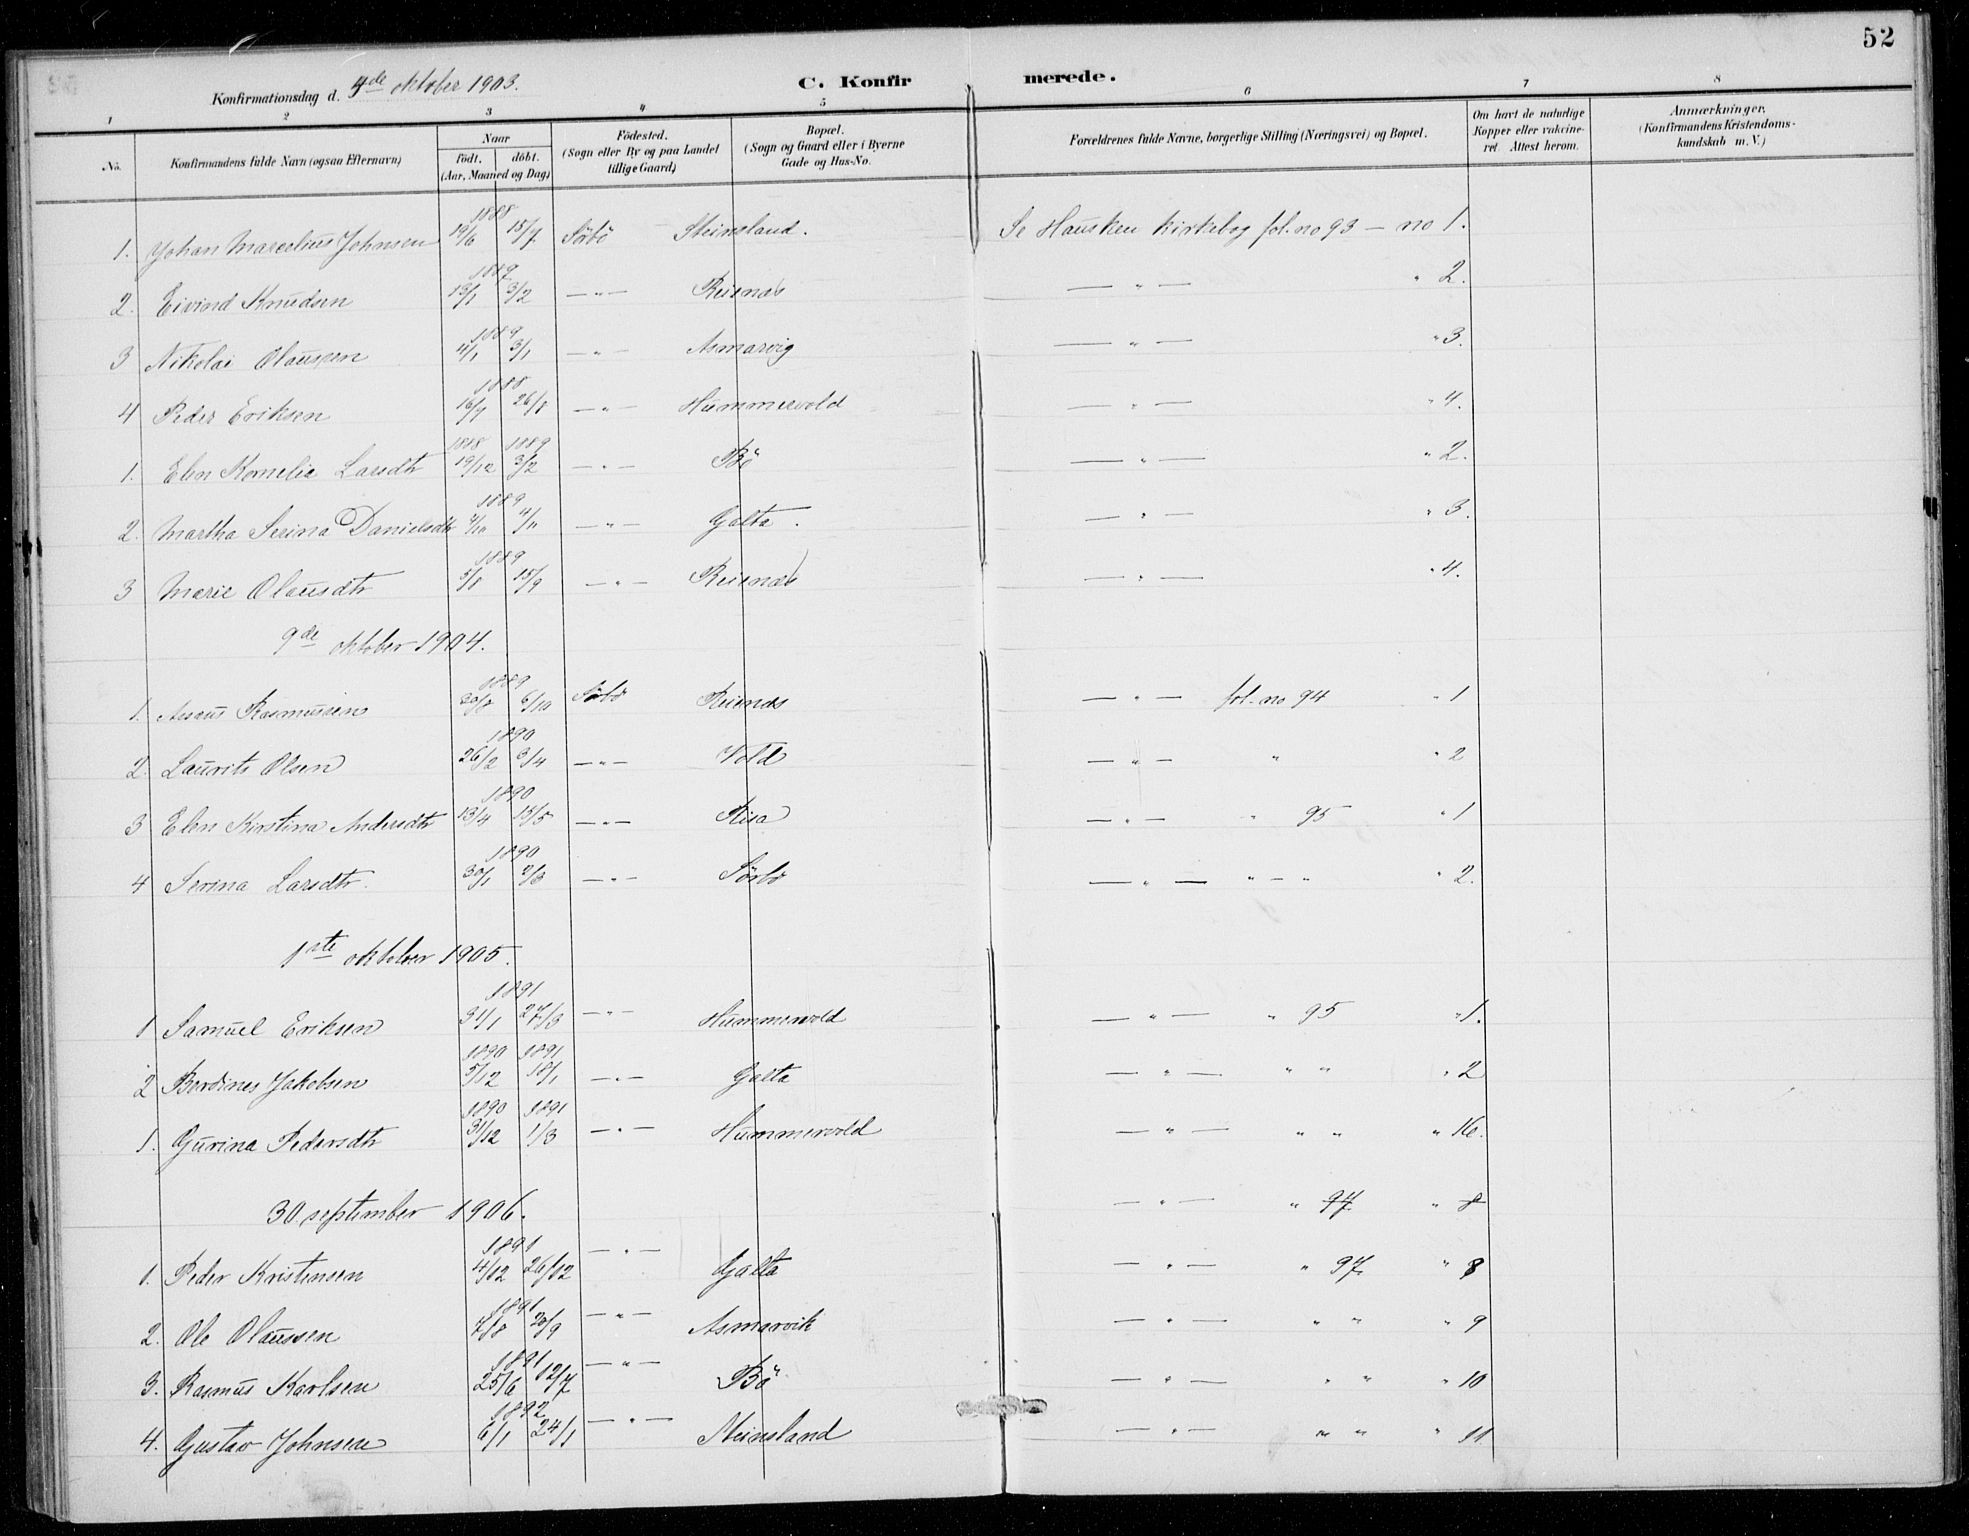 52
Konfirmationsdag d. 4de oktober 1903. C. Konfir merede.
1 2 3 4 5 6 7 8
No. Konfirmandens fulde Navn (ogsaa Efternavn) Naar Födt. döbt. (Aar, Maaned og Dag) Födested. (Sogn eller By og paa Landet tillige Gaard) Bopæl. (Sogn og Gaard eller i Byerne Gade og Hus-No. Forældrenes fulde Navne, borgerlige Stilling (Næringsvei) og Bopæl. Om havt de naturlige Kopper eller vakcineret. Attest herom. Anmærkninger. (Konfirmandens Kristendomskundskab m. V.)
1888
1. Johan Marcelius Johnsen 14/6 15/7 Sörbö Steinsland. Se Hausken kirkebog fol. no 93 — no 1.
1889
2. Eivind Knudsen 13/1 3/2 — " — Reienæs — " — " 2.
1889
3 Nikolai Olaussen 4/1 3/1 — " — Asmarvig — " — " 3.
1888
4 Peder Eriksen 16/7 26/8 — " — Hummervold — " — " 4.
1888 1889
1. Elen Kornelia Larsdtr 19/12 3/2 — " — Bö — " — " 2.
1889
2. Martha Serina Danielsdtr 4/10 4/11 — " — Galta. — " — " 3.
1889
3 Marie Olausdtr 5/8 15/9 — " — Reienæs — " — " 4.
9de oktober 1904.
1889
1. Rasmussen 30/8 6/10 Sörbö Reienæs — " — fol. no 94 " 1
1890
2. Laurits Olsen 26/2 3/4 — " — Vold — " — " " 2
1890
3 Elen Kirstina Andersdtr 13/4 15/5 — " — Risa — " — " 95 " 1
1890
4 Serina Larsdtr. 30/1 2/3 — " — Sörbö — " — " — " " 2.
1ste oktober 1905.
1891
1 Samuel Eriksen 31/1 27/3 — " — Hummervold — " — " 95 " 1.
1890 1891
2 Berdines Jakobsen 5/12 18/1 — " — Galta — " — " " " 2
1890 1891
1. Gurina Pedersdtr 31/12 1/3 — " — Hummervold — " — " " " 16.
30 september 1906. — " — " 97 " 8
1891
1. Peder Kristensen 4/12 26/12 — " — Galta — " — " 97. " 8
1891
2. Ole Olaussen 7/8 20/9 — " — Asmarvik — " — " " " 9
1891
3. Rasmus Karlsen 25/6 12/7 — " — Bö — " — " " " 10
1892
4. Gustav Johnsen 6/1 24/1 — " — Steinsland — " — " " " 11